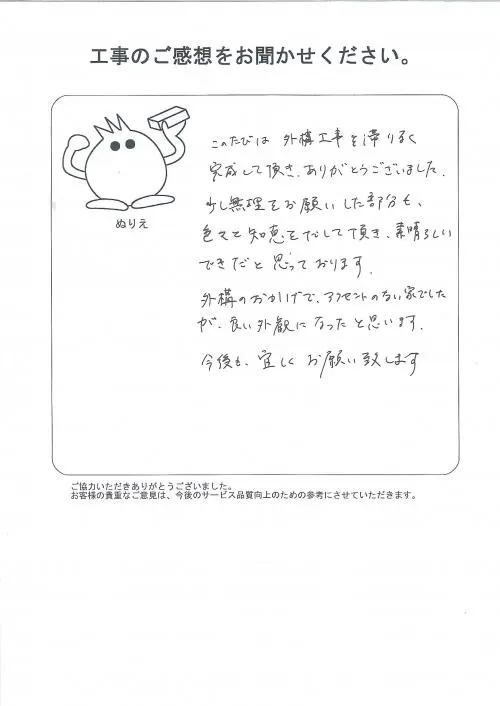 工事のご感想をお聞かせください。
ぬりえ
このたびは 外構工事を滞りなく
完成して頂き、ありがとうございました。
少し無理をお願いした部分も、
色々と知恵をだして頂き、素晴らしい
できだと思っております。
外構のおかげで、アクセントのない家でした
が、良い外観になったと思います。
今後も、宜しくお願い致します
ご協力いただきありがとうございました。
お客様の貴重なご意見は、今後のサービス品質向上のための参考にさせていただきます。